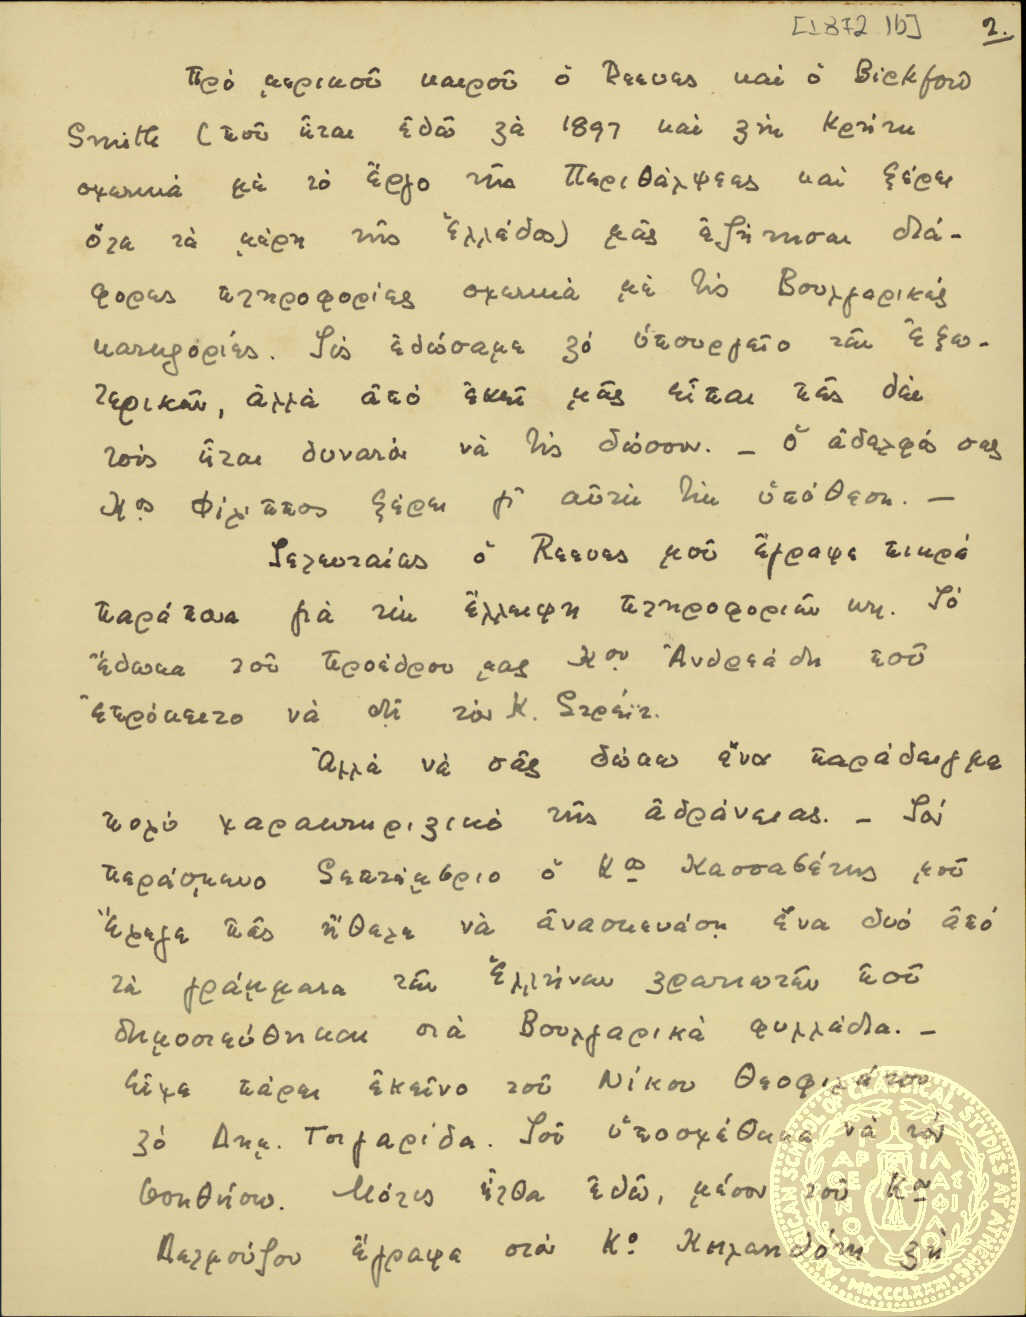 [1872 1b] 2.
Πρὸ μερικοῦ καιροῦ ὁ Reeves καὶ ὁ Bickford
Smith (ποῦ ἦταν ἐδῶ στὰ 1897 καὶ στὴν Κρήτη
σχετικὰ μὲ τὸ ἔργο τῆς Περιθάλψεως καὶ ξέρει
ὅλα τὰ μέρη τῆς Ἑλλάδος) μᾶς ἐζήτησαν διά-
φορες πληροφορίες σχετικὰ μὲ τὶς Βουλγαρικές
κατηγορίες. Τὶς ἐδώσαμε στὸ ὑπουργεῖο τῶν Ἐξω-
τερικῶν, ἀλλὰ ἀπὸ ἐκεῖ μᾶς εἶπαν πῶς δὲν
τοὺς ἦταν δυνατὸν νὰ τὶς δώσουν. – Ὁ ἀδελφός σας
Κος Φίλιππος ξέρει γι' αὐτὴν τὴν ὑπόθεση. –
Τελευταίως ὁ Reeves μοῦ ἔγραψε πικρά
παράπονα γιὰ τὴν ἔλλειψη πληροφοριῶν κτλ. Τὸ
ἔδωκα τοῦ προέδρου μας Κου Ἀνδρεάδη ποῦ
ἐπρόκειτο νὰ δῆ τὸν Κ. Στρέιτ.
Ἀλλὰ νὰ σᾶς δώσω ἕνα παράδειγμα
πολύ χαρακτηριστικὸ τῆς ἀδράνειας. – Τὸν
περάσμενο Σεπτέμβριο ὁ Κος Κασσαβέτης μοῦ
ἔλεγε πῶς ἤθελε νὰ ἀνασκευάση ἕνα δυό ἀπό
τὰ γράμματα τῶν Ἑλλήνων στρατιωτῶν ποῦ
δημοσιεύθηκαν στὰ Βουλγαρικὰ φυλλάδια. –
Εἶχε πάρει ἐκεῖνο τοῦ Νίκου Θεοφιλάτου
στὸ Δημ. Τσιγαρίδα. Τοῦ ὑποσχέθηκα νὰ τὸν
βοηθήσω. Μόλις ἦλθα ἐδῶ, μέσον τοῦ Κου
Δελμούζου ἔγραψα στὸν Κο Καλανδότη στὴ
AMERICAN SCHOOL OF CLASSICAL STUDIES AT ATHENS
ΠΑΡΘΕΝΟΥ ΦΙΛΑΣ ΦΙΛΟΙ
MDCCCLXXXI